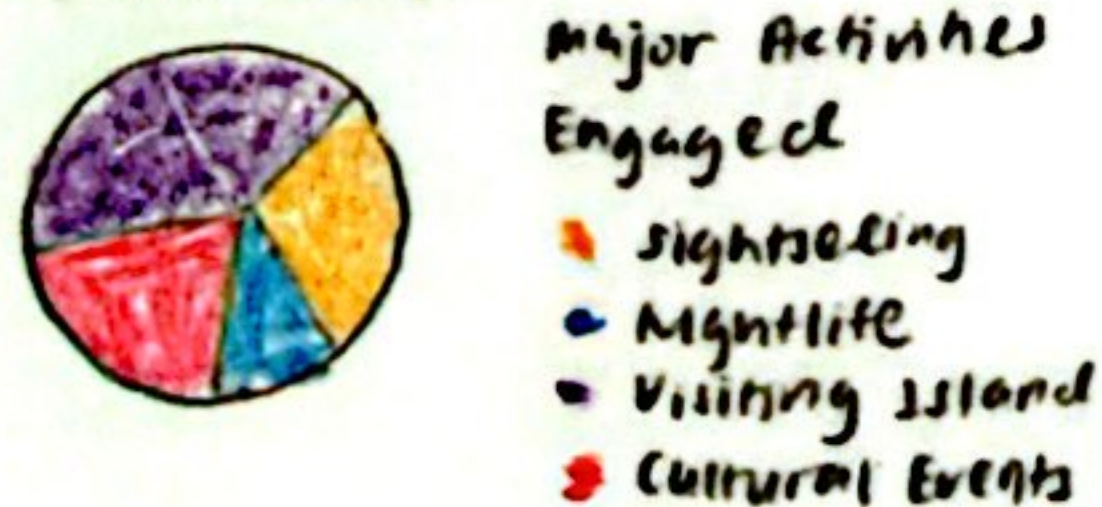 Major Activities
Engaged
sightseeing
Nightlife
Visiting Island
Cultural Events